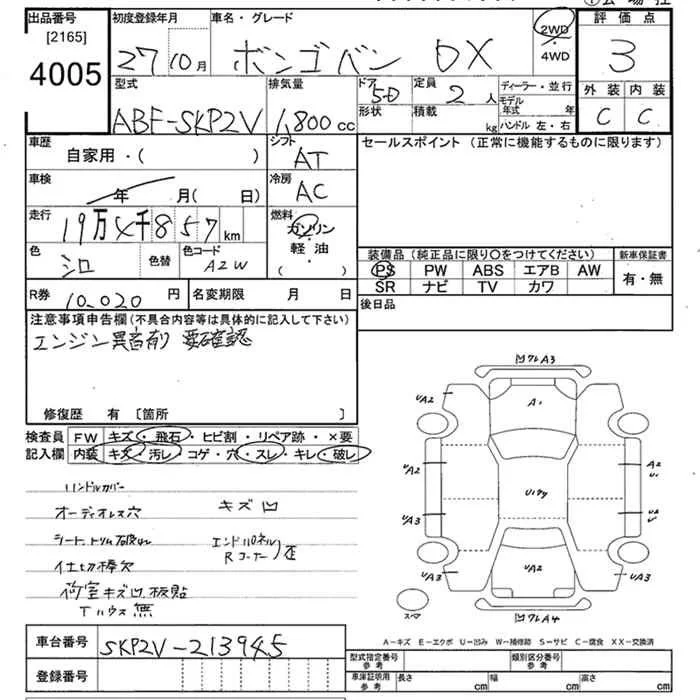 出品番号
[2165]
4005
初度登録年月
27 10月
車名・グレード
ボンゴバン DX
2WD
4WD
評価点
3
外装 内装
C C
型式
ABF-SKP2V
排気量
1,800cc
ドア
5D
形状
定員
2人
積載
kg
ディーラー・並行
モデル年式 年
ハンドル 左・右
車歴
自家用・( )
シフト
AT
セールスポイント(正常に機能するものに限ります)
車検
年 月( 日)
冷房
AC
走行
19万4千857km
燃料
ガソリン
軽・油
( )
色
シロ
色替
色コード
A2W
装備品(純正品に限り○をつけてください)
PS PW ABS エアB AW
SR ナビ TV カワ
新車保証書
有・無
R券 10,020円
名変期限 月 日
後日品
注意事項申告欄(不具合内容等は具体的に記入して下さい)
エンジン異音有り 要確認
修復歴 有 〔箇所 〕
検査員
記入欄
FW キズ・飛石・ヒビ割・リペア跡・×要
内装 キズ・汚レ・コゲ・穴・スレ・キレ・破レ
ハンドルカバー
オーディオレス穴
キズ凹
シート、トリム破れ
エンドパネル
Rコーナー 歪
仕切棒欠
荷室キズ凹 板貼
Tハウス無
凹ワレA3
UA2
A1
UA2
UA2
A2
U1
U1タタ
UA3
UA3
UA2
UA3
凹ワレA4
スペア
A-キズ E-エクボ U-凹み W-補修跡 S-サビ C-腐食 XX-交換済
車台番号
SKP2V-213945
登録番号
型式指定番号
参考
類別区分番号
参考
車庫証明用
参考
長さ cm
幅 cm
高さ cm